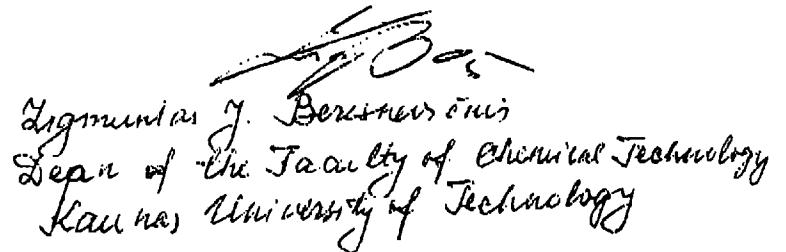 Zigmuntas J. Beresnevičius
Dean of the Faculty of Chemical Technology
Kaunas University of Technology